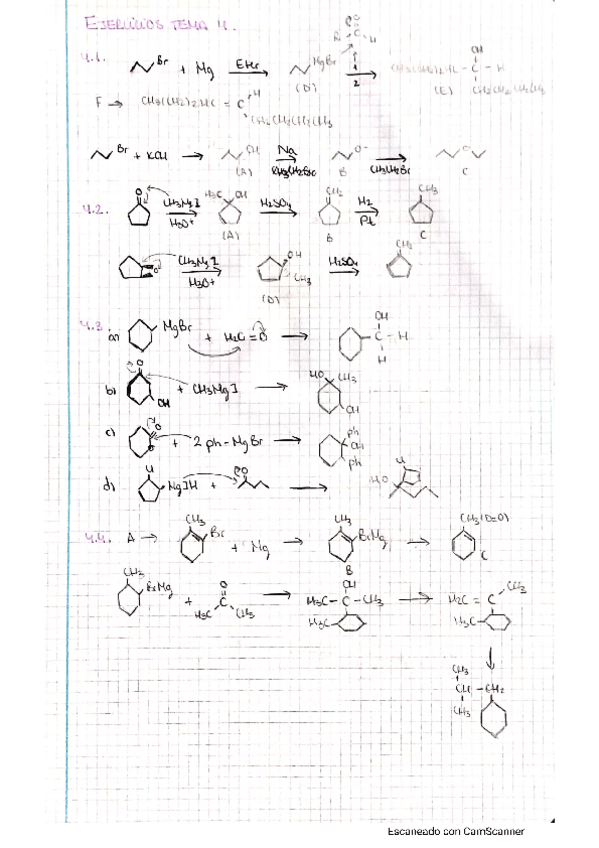 EJERCICIOS TEMA 4.
4.1. Br + Mg Ether MgBr (D) 1 2 OH C - H (E)
F → CH3(CH2)2HC = C H CH2CH2CH2CH3
Br + KOH → OH (A) Na CH3CH2Br O- B CH3CH2Br O C
4.2. O CH3MgI H3O+ H3C OH (A) H2SO4 CH2 B H2 Pt CH3 C
O CH3MgI H3O+ OH CH3 (D) H2SO4 CH3
4.3. a) MgBr + H2C = O → OH C - H H
b) O OH + CH3MgI → HO CH3 OH
c) O + 2 ph-MgBr → ph OH ph
d) + O → HO
4.4. A → CH3 Br + Mg → CH3 BrMg B → CH3 (D=O) C
CH3 BrMg + O H3C CH3 → OH H3C - C - CH3 H3C → H2C = C CH3 H3C
CH3 CH - CH2 CH3
Escaneado con CamScanner